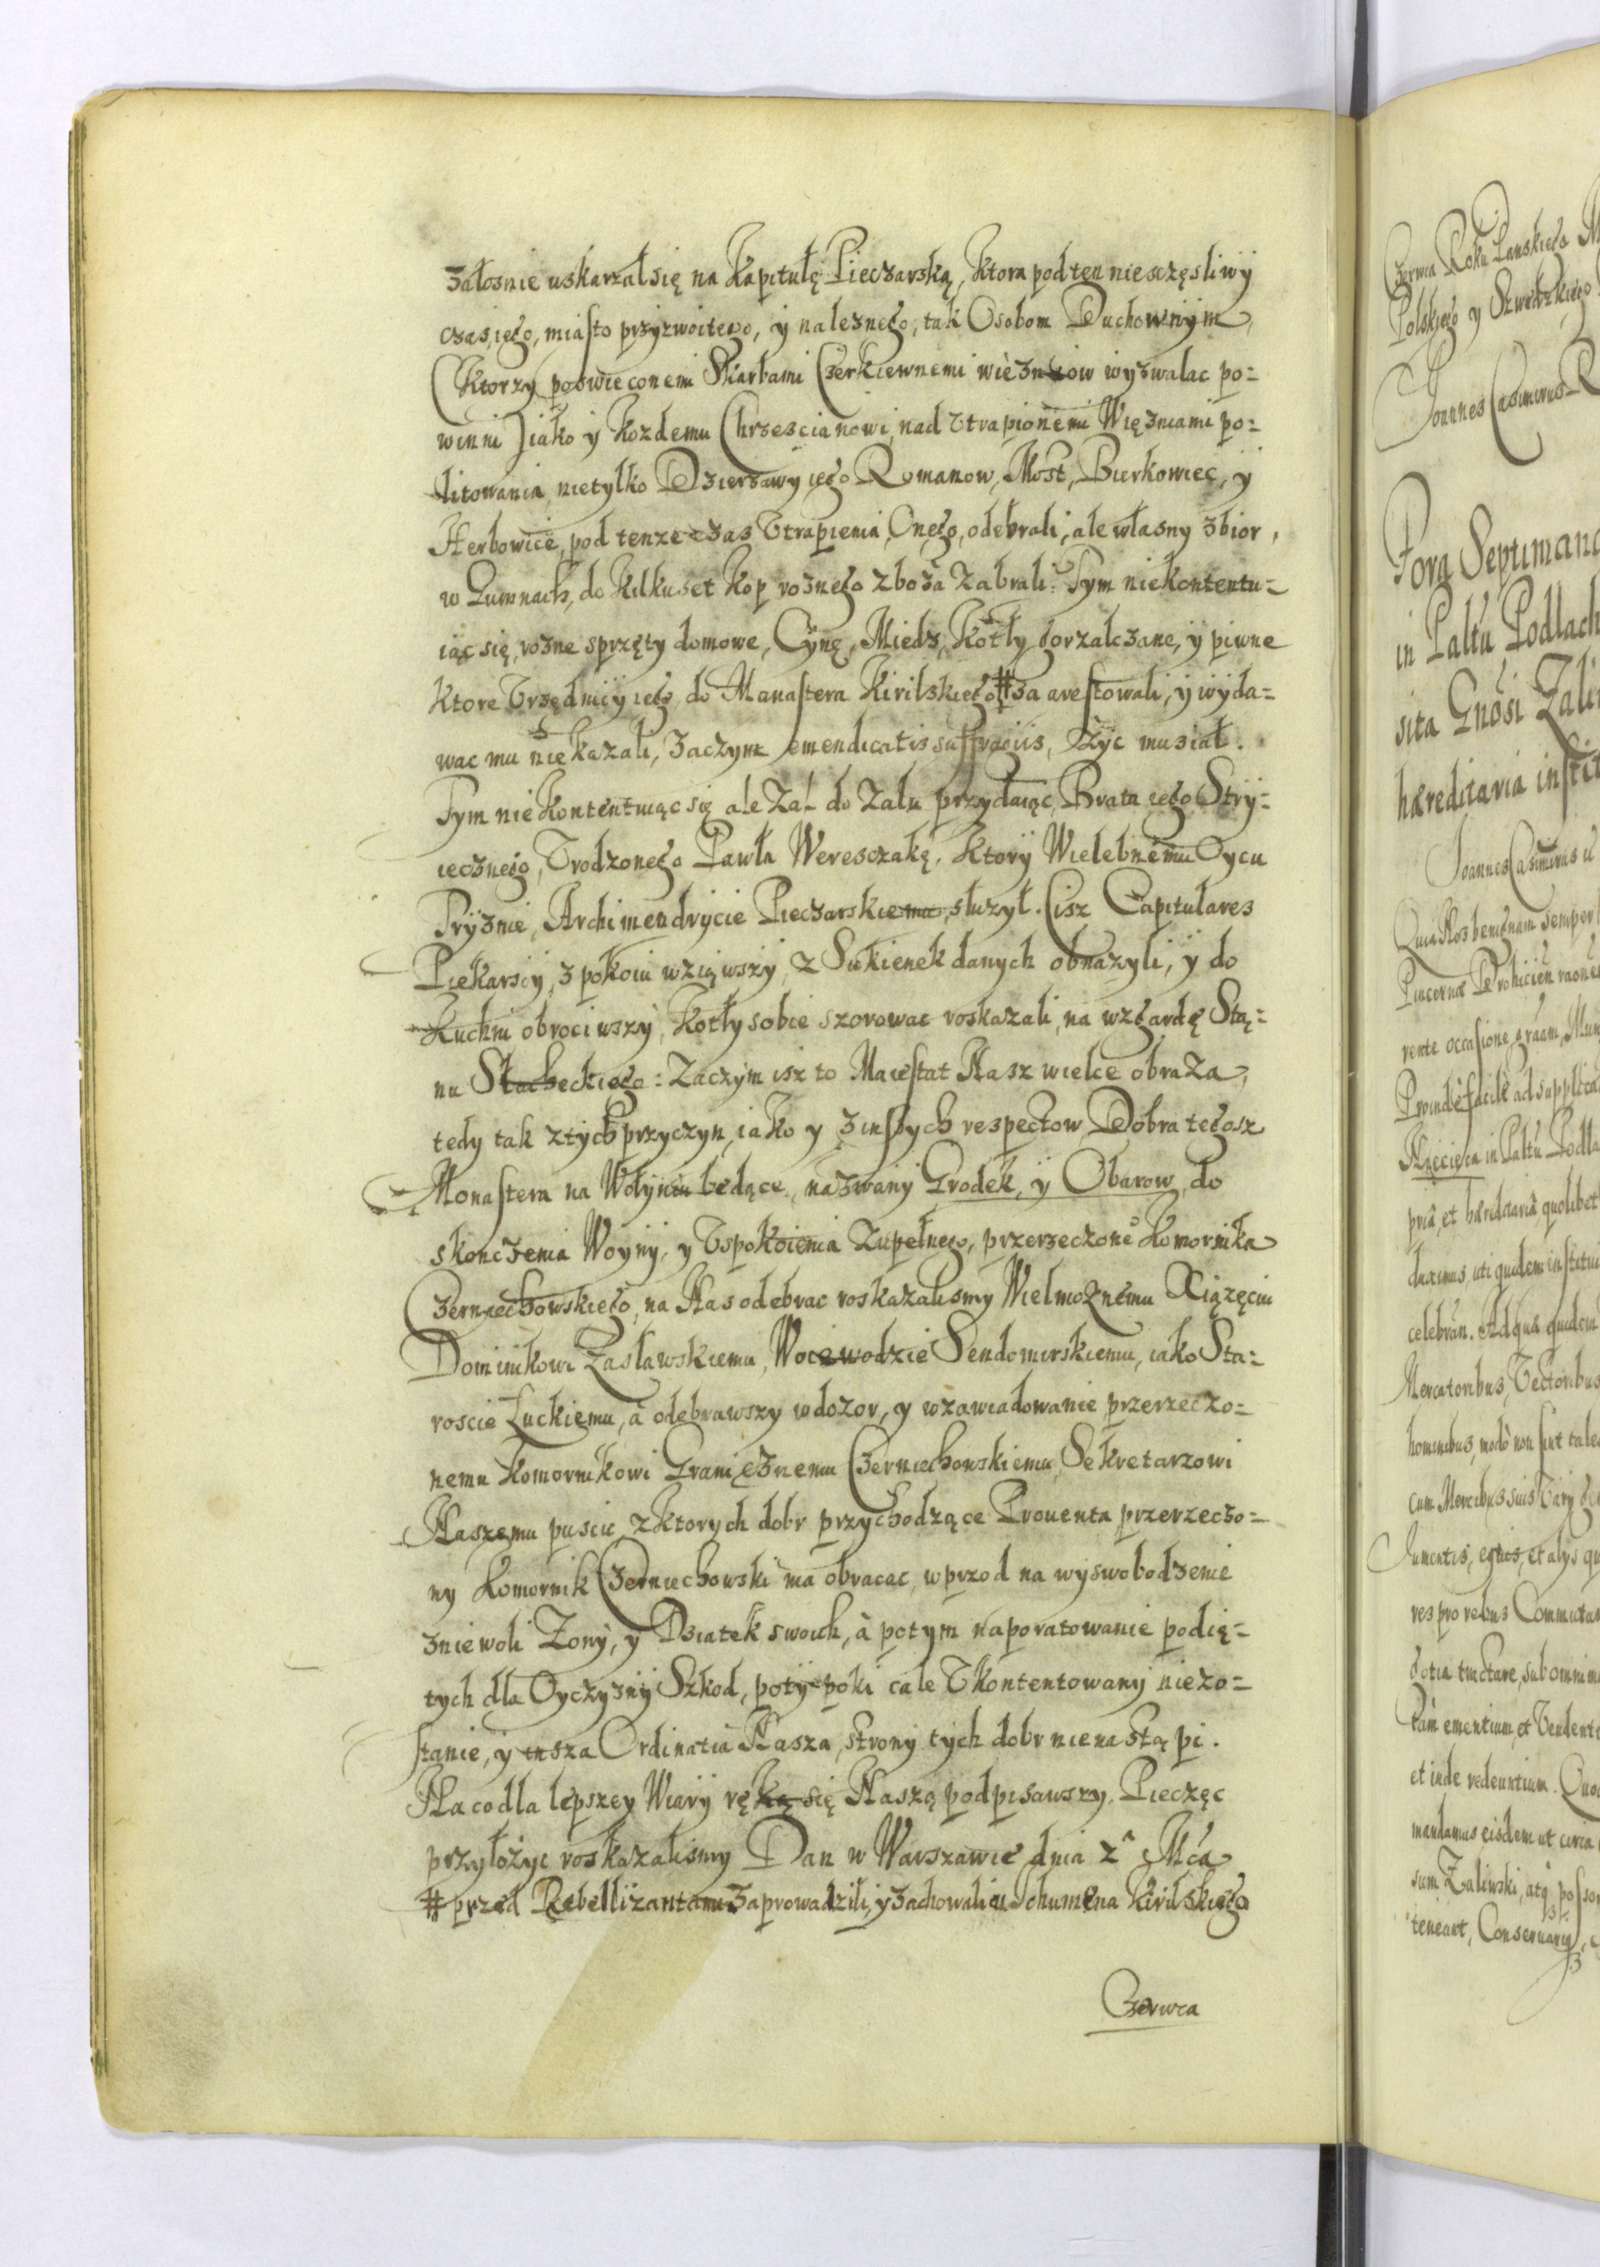 załosnie uskarzał się na Kapitułę Pieczarską, Ktora pod ten niesczęsliwy
czas iego, miasto przyzwoitego, y naleznego, tak Osobom Duchownym
(Ktorzy poswieconemi Skarbami Czerkiewnemi wieznow wyzwalac po=
winni) iako y Kozdemu Chrzescianowi, nad Utrapionemi Więzniami po=
litowania, nietylko Dzierzawy iego Romanow, Most, Bierkowiec, y
Herbowice, pod tenze czas Utrapienia Onego, odebrali, ale własny zbior,
w Gumnach, do Kilkuset Kop roznego zboza zabrali: Tym niekontentu=
iąc się, rozne sprzęty domowe, Cynę, Miedz, Kotły gorzałczane, y piwne
Ktore Urzędnicy iego do Manastera Kirilskiego # za arestowali, y wyda=
wac mu nie Kazali, Zaczym emendicatis suffragiis, zyc musiał.
Tym nie Kontentuiąc się ale Zal do Zalu przydaiąc, Brata iego Stry=
iecznego, Urodzonego Pawła Weresczakę, Ktory Wielebnemu Oycu
Tryznie, Archimendrycie Pieczarskiemu, słuzył. Cisz Capitulares
Piekarscy, z pokoiu wziąwszy, z Sukienek danych obnazyli, y do
Kuchni obrociwszy, Kotły sobie szorowac roskazali, na wzgardę Sta=
nu Slacheckiego: Zaczym isz to Maiestat Nasz wielce obraza,
tedy tak z tych przyczyn, iako y z inszych respectow Dobra tegosz
Monastera na Wołyniu będące, nazwany Grodek, y Obarow, do
skonczenia Woyny, y Uspokoienia Zupełnego, przerzeczone Komornika
Czerniechowskiego, na Nas odebrac roskazalismy Wielmoznemu Xiązęciu
Dominikowi Zasławskiemu, Woiewodzie Sendomirskiemu, iako Sta=
roscie Łuckiemu, a odebrawszy w dozor, y w zawiadowanie przerzeczo=
nemu Komornikowi Granicznemu Czerniechowskiemu, Sekretarzowi
Naszemu puscic, z Ktorych dobr przychodzące Prouenta przerzeczo=
ny Komornik Czerniechowski ma obracac, w przod na wyswobodzenie
z niewoli Zony, y Dziatek swoich, à potym na poratowanie podię=
tych dla Oyczyzny Szkod, poty poki cale Ukontentowany niezo=
stanie, y insza Ordinatia Nasza, strony tych dobr nie nastąpi.
Na co dla lepszey Wiary ręką się Naszą podpisawszy, Pieczęc
przyłożyc roskazalismy Dan w Warszawie dnia 2 Mca
# przed Rebellizantami zaprowadzili, y zachowali u Ihumena Kirilskiego
Czerwca

Czerwca Roku Panskiego
Polskiego y Szwedzkiego
Joannes Casimirus R
Fora Septimana
in Paltu Podlach
sita Gnosi Zali
hæreditaria instit
Joannes Casimirus
Quia Nos benignam semper
rente occasione
in Paltu Podla
celebran. Ad quæ quidem
Mercatoribus, Vectoribus
hominibus, modo non sint tale
cum Mercibus suis
Jumentis, equis, et alys qu
res pro rebus Commuta
gotia tractare, sub omnimo
tam ementium, et Vendent
et inde redeuntium. Quo
mandamus eisdem ut circa
sum Zaliwski, atq posso
teneant, Conseruary